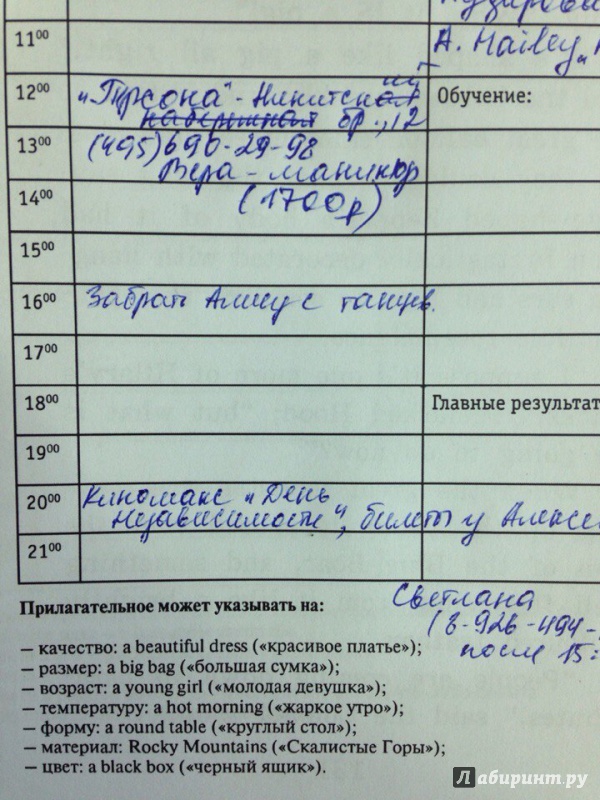 11⁰⁰
A. Hailey „
12⁰⁰
„Персона" - Никитский
набережная бр., 12
Обучение:
13⁰⁰
(495) 690-29-98
Вера - маникюр
14⁰⁰
(1700р)
15⁰⁰
16⁰⁰
Забрать Алису с танцев.
17⁰⁰
18⁰⁰
Главные результат
19⁰⁰
20⁰⁰
Киномакс „День
Независимости", билеты у Алексе
21⁰⁰
Светлана
(8-926-494-
после 15:
Прилагательное может указывать на:
— качество: a beautiful dress («красивое платье»);
— размер: a big bag («большая сумка»);
— возраст: a young girl («молодая девушка»);
— температуру: a hot morning («жаркое утро»);
— форму: a round table («круглый стол»);
— материал: Rocky Mountains («Скалистые Горы»);
— цвет: a black box («черный ящик»).
Лабиринт.ру